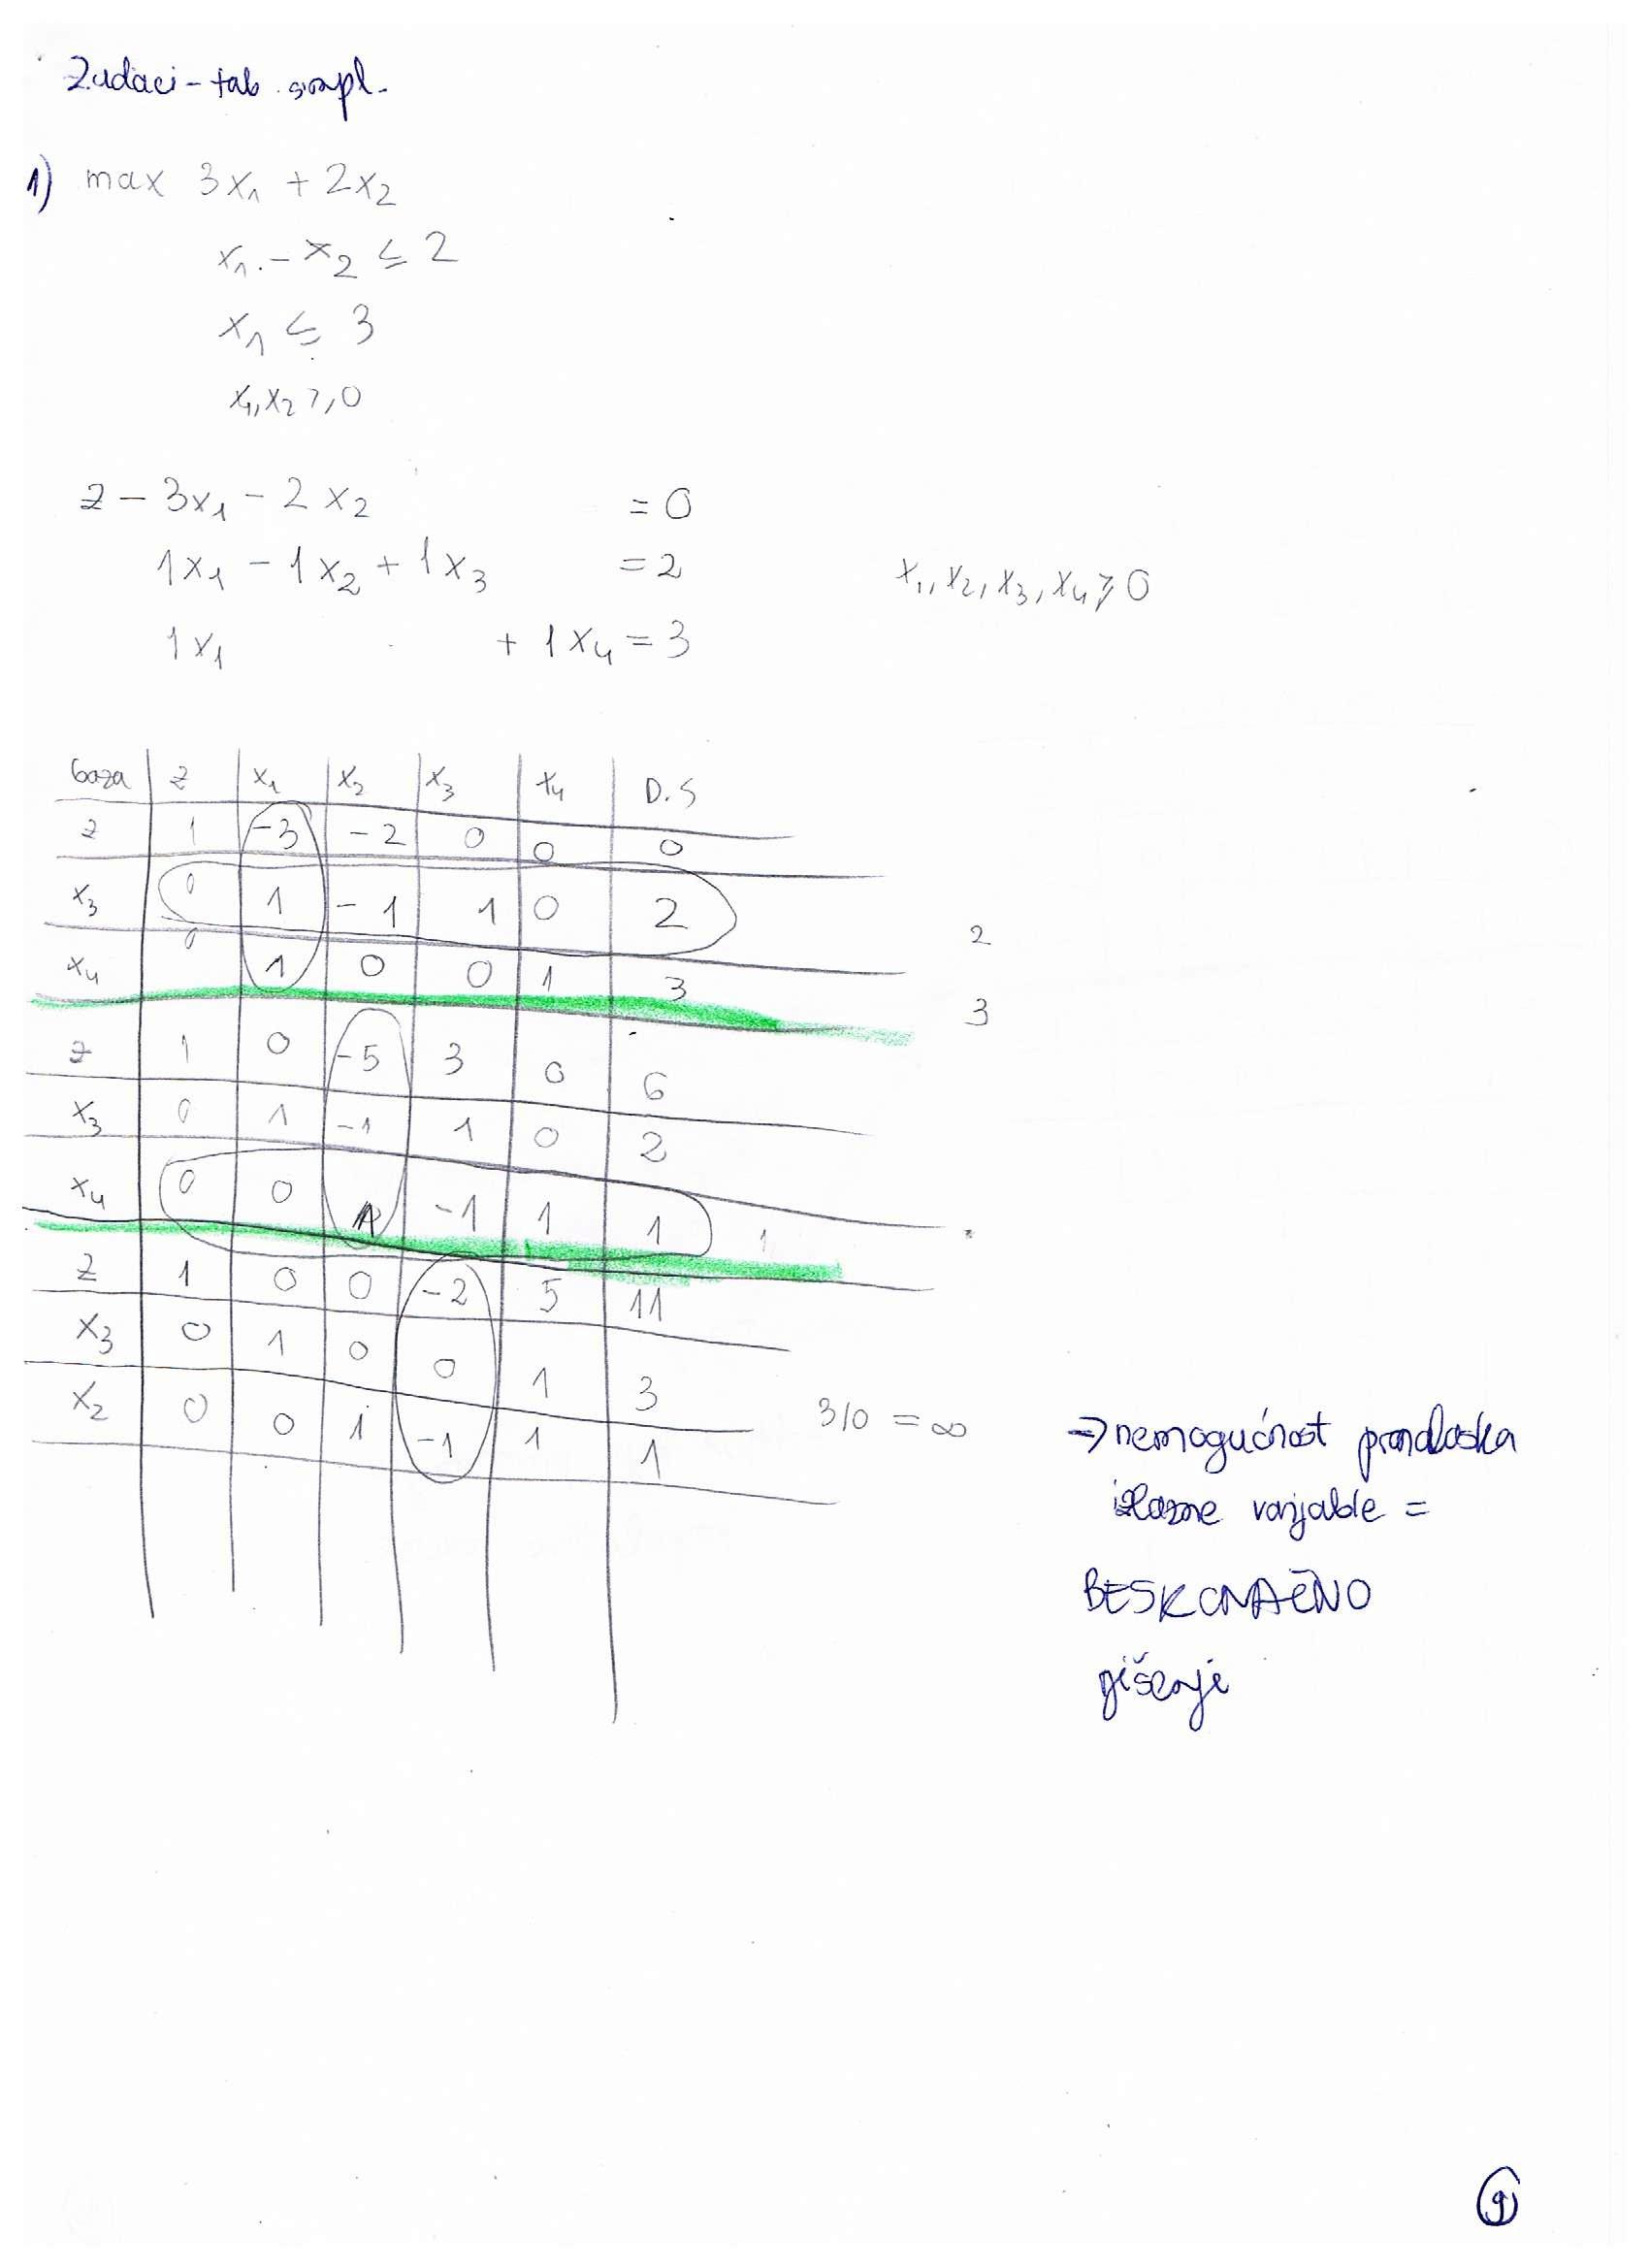 Zadaci - tab. simpl.
1) max 3x₁ + 2x₂
x₁ - x₂ ≤ 2
x₁ ≤ 3
x₁, x₂ ≥ 0
z - 3x₁ - 2x₂ = 0
1x₁ - 1x₂ + 1x₃ = 2
x₁, x₂, x₃, x₄ ≥ 0
1x₁ + 1x₄ = 3
baza z x₁ x₂ x₃ x₄ D.S
z 1 -3 -2 0 0 0
x₃ 0 1 -1 1 0 2 2
x₄ 0 1 0 0 1 3 3
z 1 0 -5 3 0 6
x₃ 0 1 -1 1 0 2
x₄ 0 0 1 -1 1 1 1
z 1 0 0 -2 5 11
x₃ 0 1 0 0 1 3 3/0 = ∞
x₂ 0 0 1 -1 1 1
→ nemogućnost pronalaska
izlazne varijable =
BESKONAČNO
rješenje
9